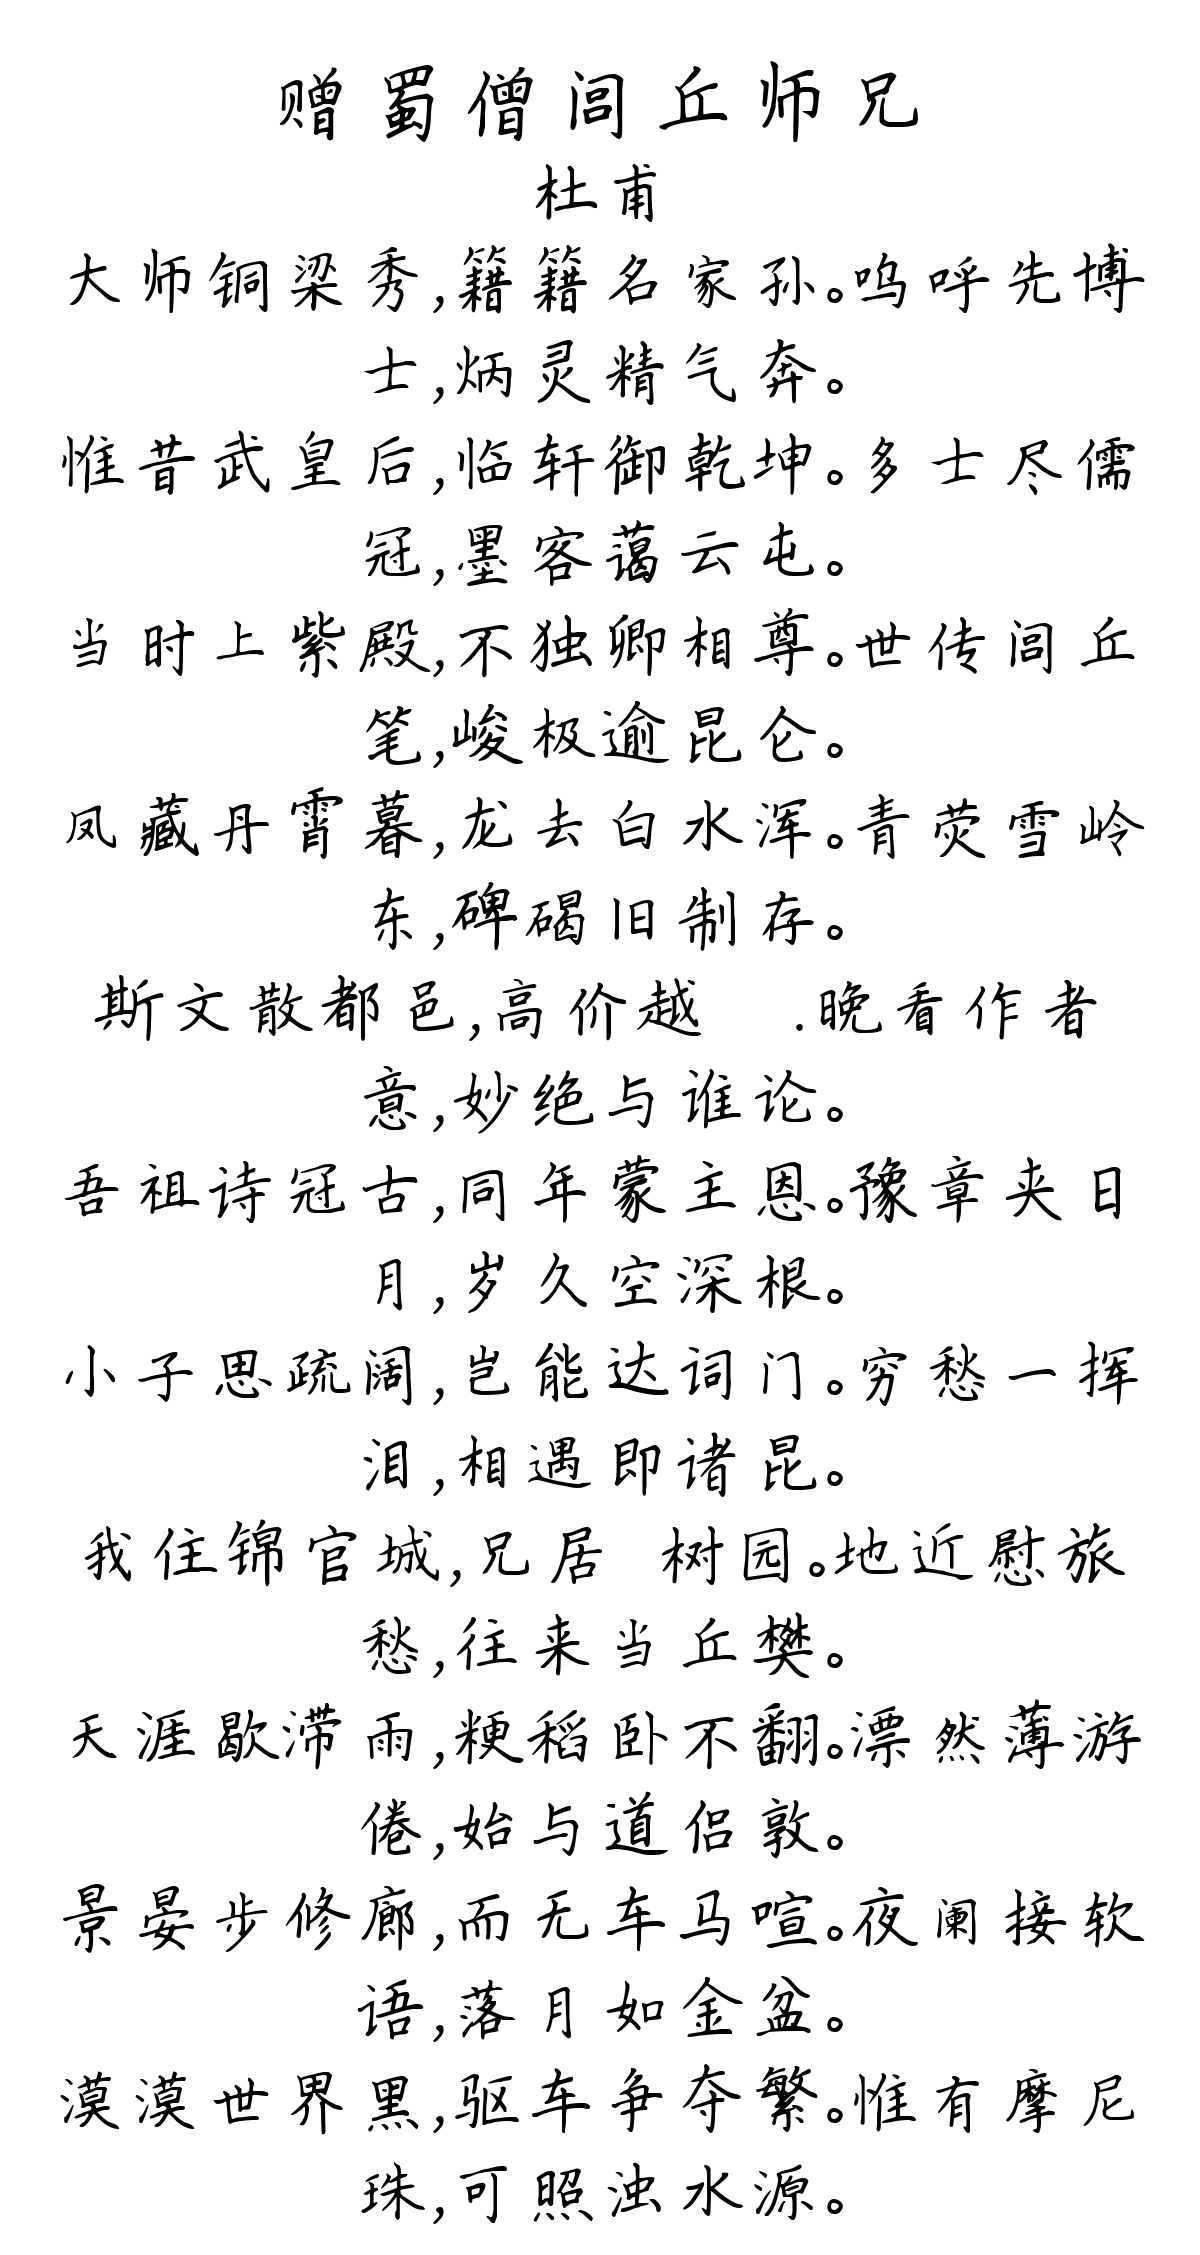 赠蜀僧闾丘师兄
杜甫
大师铜梁秀,籍籍名家孙。呜呼先博
士,炳灵精气奔。
惟昔武皇后,临轩御乾坤。多士尽儒
冠,墨客蔼云屯。
当时上紫殿,不独卿相尊。世传闾丘
笔,峻极逾昆仑。
凤藏丹霄暮,龙去白水浑。青荧雪岭
东,碑碣旧制存。
斯文散都邑,高价越 .晚看作者
意,妙绝与谁论。
吾祖诗冠古,同年蒙主恩。豫章夹日
月,岁久空深根。
小子思疏阔,岂能达词门。穷愁一挥
泪,相遇即诸昆。
我住锦官城,兄居 树园。地近慰旅
愁,往来当丘樊。
天涯歇滞雨,粳稻卧不翻。漂然薄游
倦,始与道侣敦。
景晏步修廊,而无车马喧。夜阑接软
语,落月如金盆。
漠漠世界黑,驱车争夺繁。惟有摩尼
珠,可照浊水源。